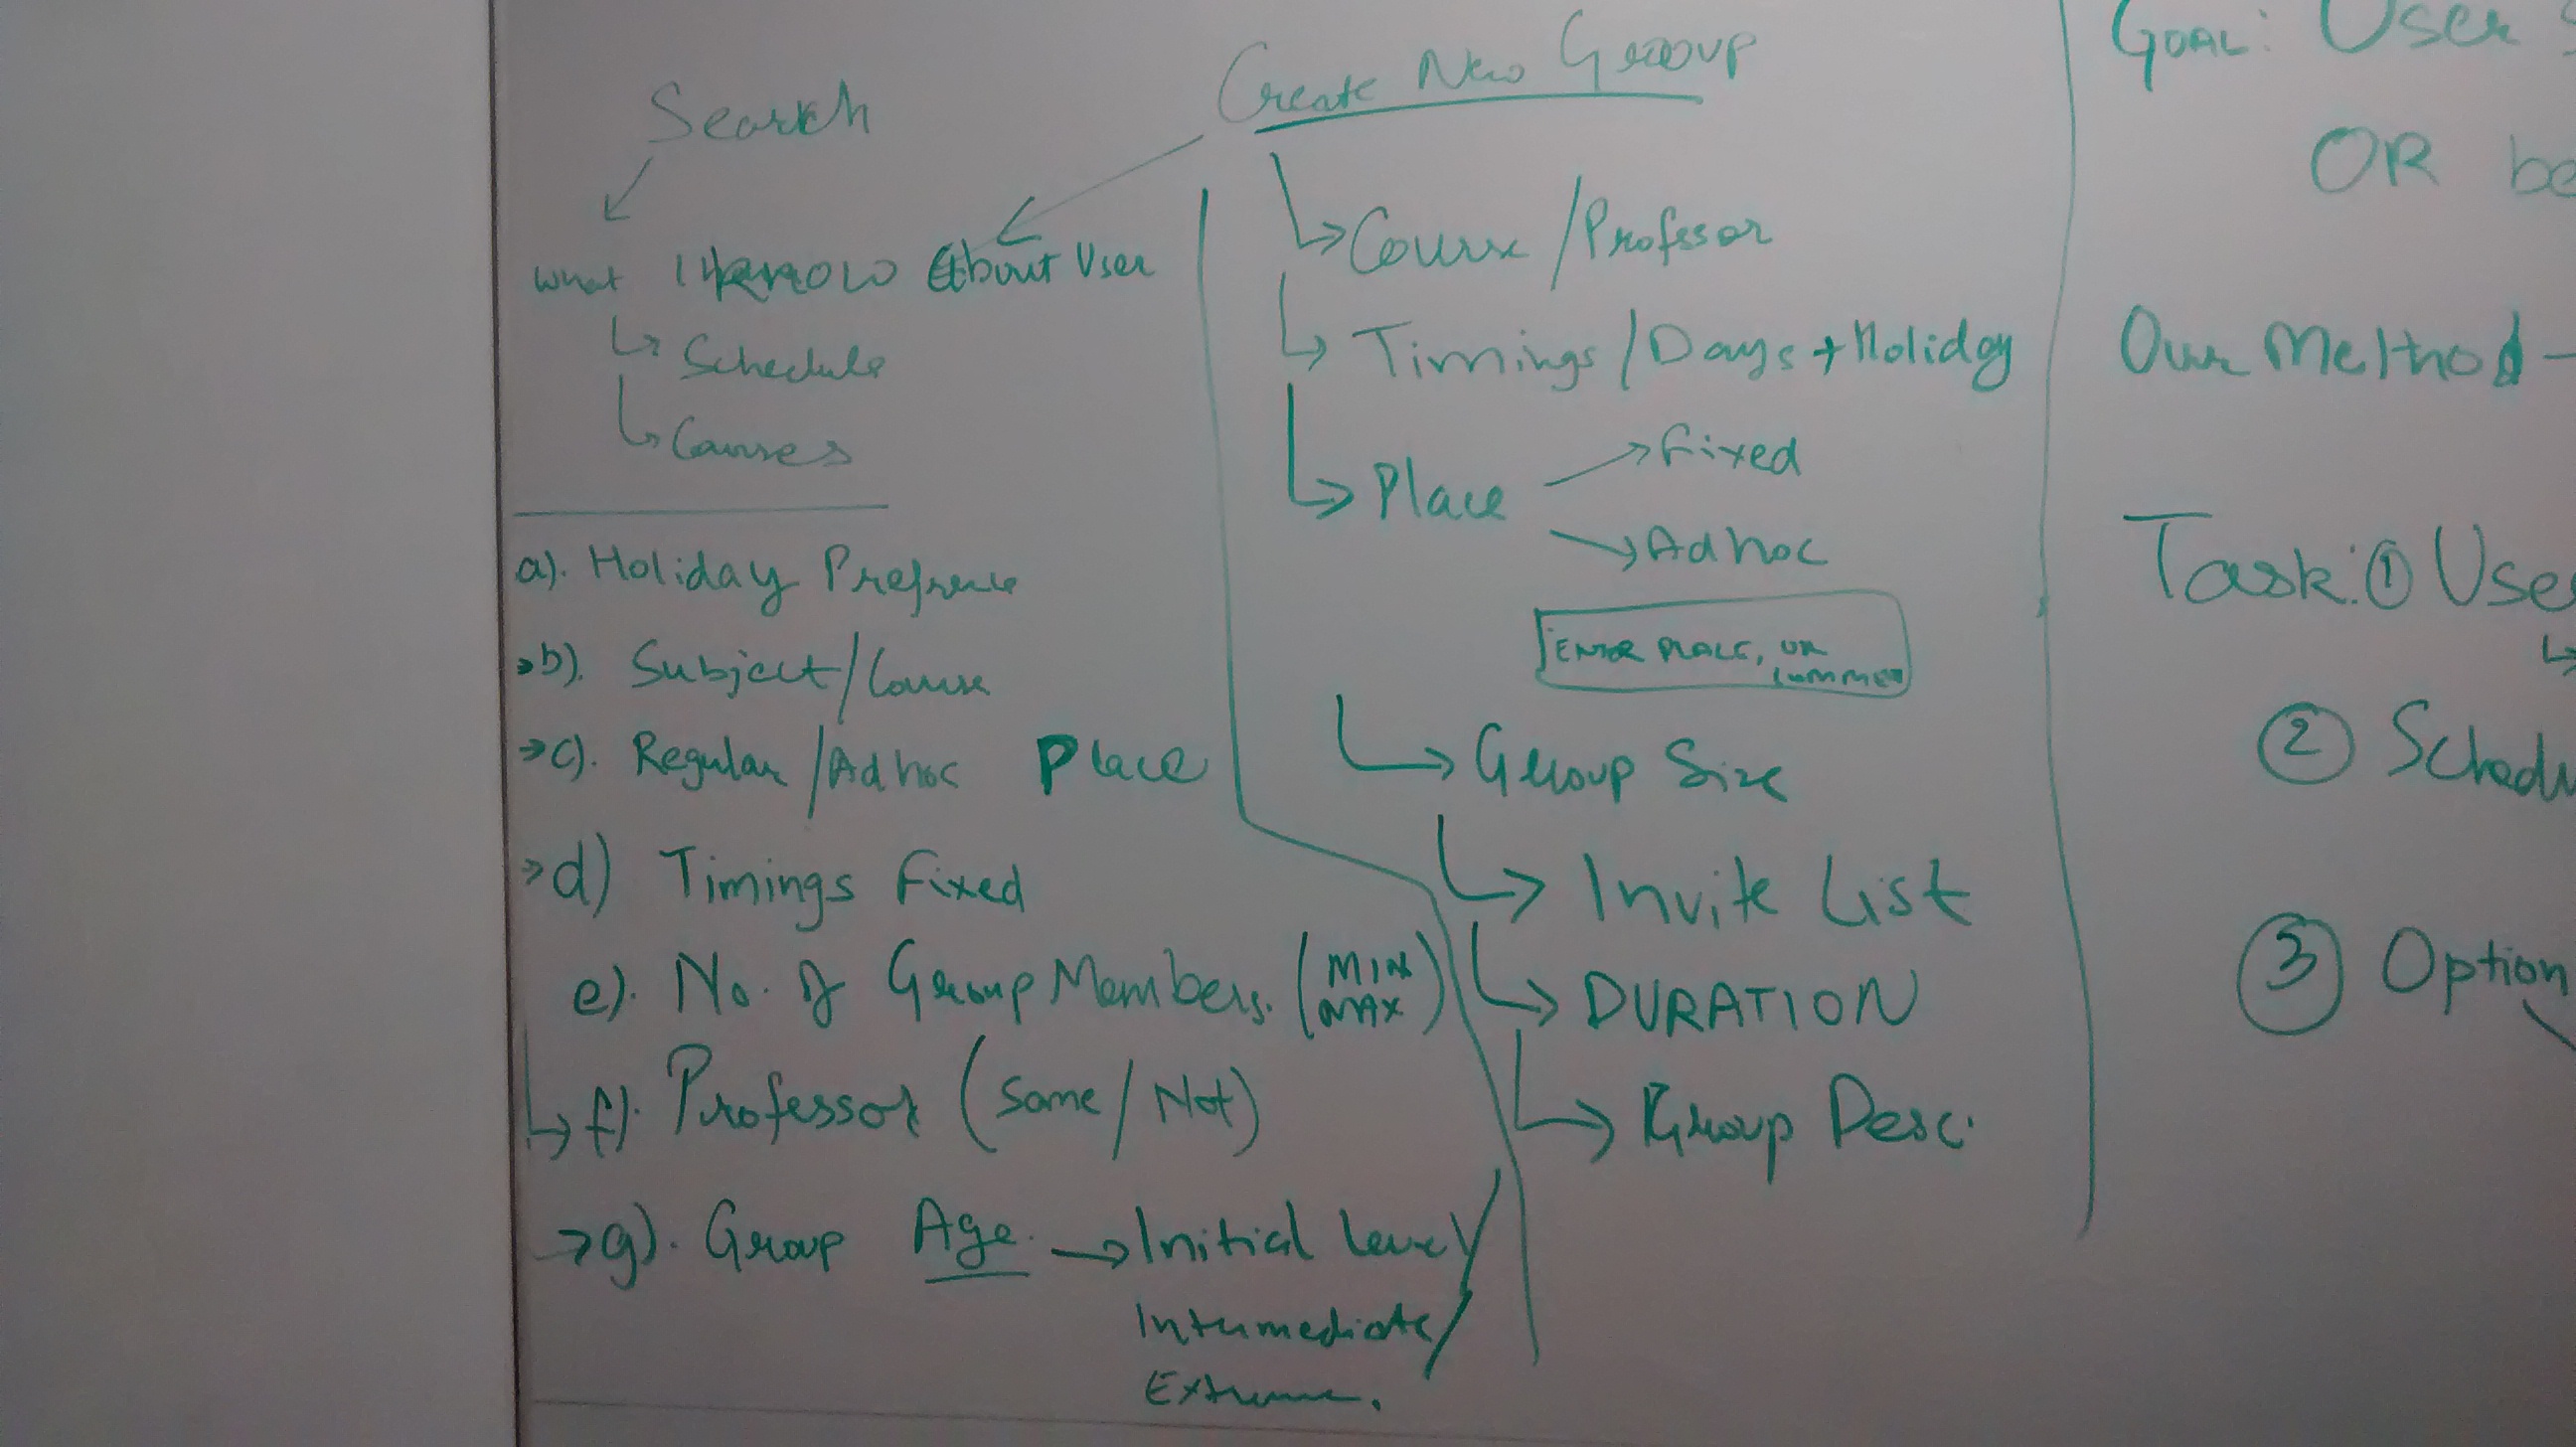 Search
What I know About User
↳ Schedule
↳ Courses
a). Holiday Prefrence
→b). Subject/Course
→c). Regular/Adhoc Place
→d) Timings Fixed
e). No. of Group Members. (MIN MAX)
↳ f). Professor (Same/Not)
→g). Group Age. → Initial level/
Intermediate/
Extreme.
Create New Group
↳ Course/Professor
↳ Timings/Days + Holiday
↳ Place
→ Fixed
→ Adhoc
ENTER PLACE, OR
COMMENT
↳ Group Size
↳ Invite List
↳ DURATION
↳ Group Desc.
GOAL: User
OR be
Our Method -
Task: ① Use
② Schedu
③ Option